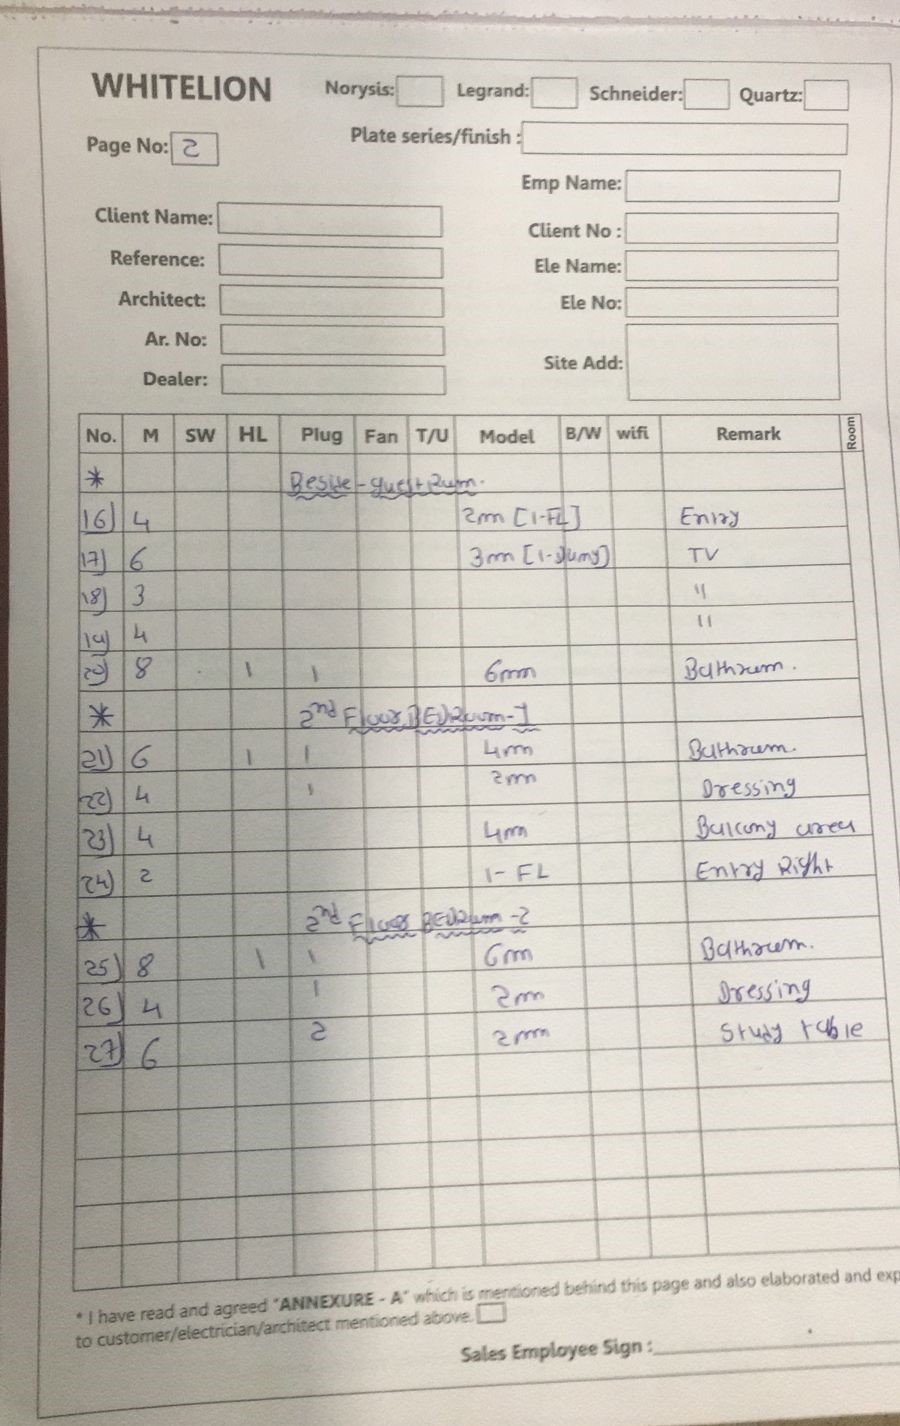 WHITELION Norysis: Legrand: Schneider: Quartz:
Page No: 2 Plate series/finish :
Emp Name:
Client Name: Client No :
Reference: Ele Name:
Architect: Ele No:
Ar. No:
Site Add:
Dealer:
No. M SW HL Plug Fan T/U Model B/W wifi Remark Room
* Beside-guest Rum.
16) 4 2m [1-FL] Entry
17) 6 3m [1-Dumy] TV
18) 3 "
19) 4 "
20) 8 1 1 6m Bathrum.
* 2nd Floor BEDRoom-1
21) 6 1 1 4m Bathrum.
22) 4 1 2m Dressing
23) 4 4m Balcony area
24) 2 1-FL Entry Right
* 2nd Floor BEDRum-2
25) 8 1 1 6m Bathrum.
26) 4 1 2m Dressing
27) 6 2 2m Study table
* I have read and agreed "ANNEXURE - A" which is mentioned behind this page and also elaborated and exp
to customer/electrician/architect mentioned above.
Sales Employee Sign :